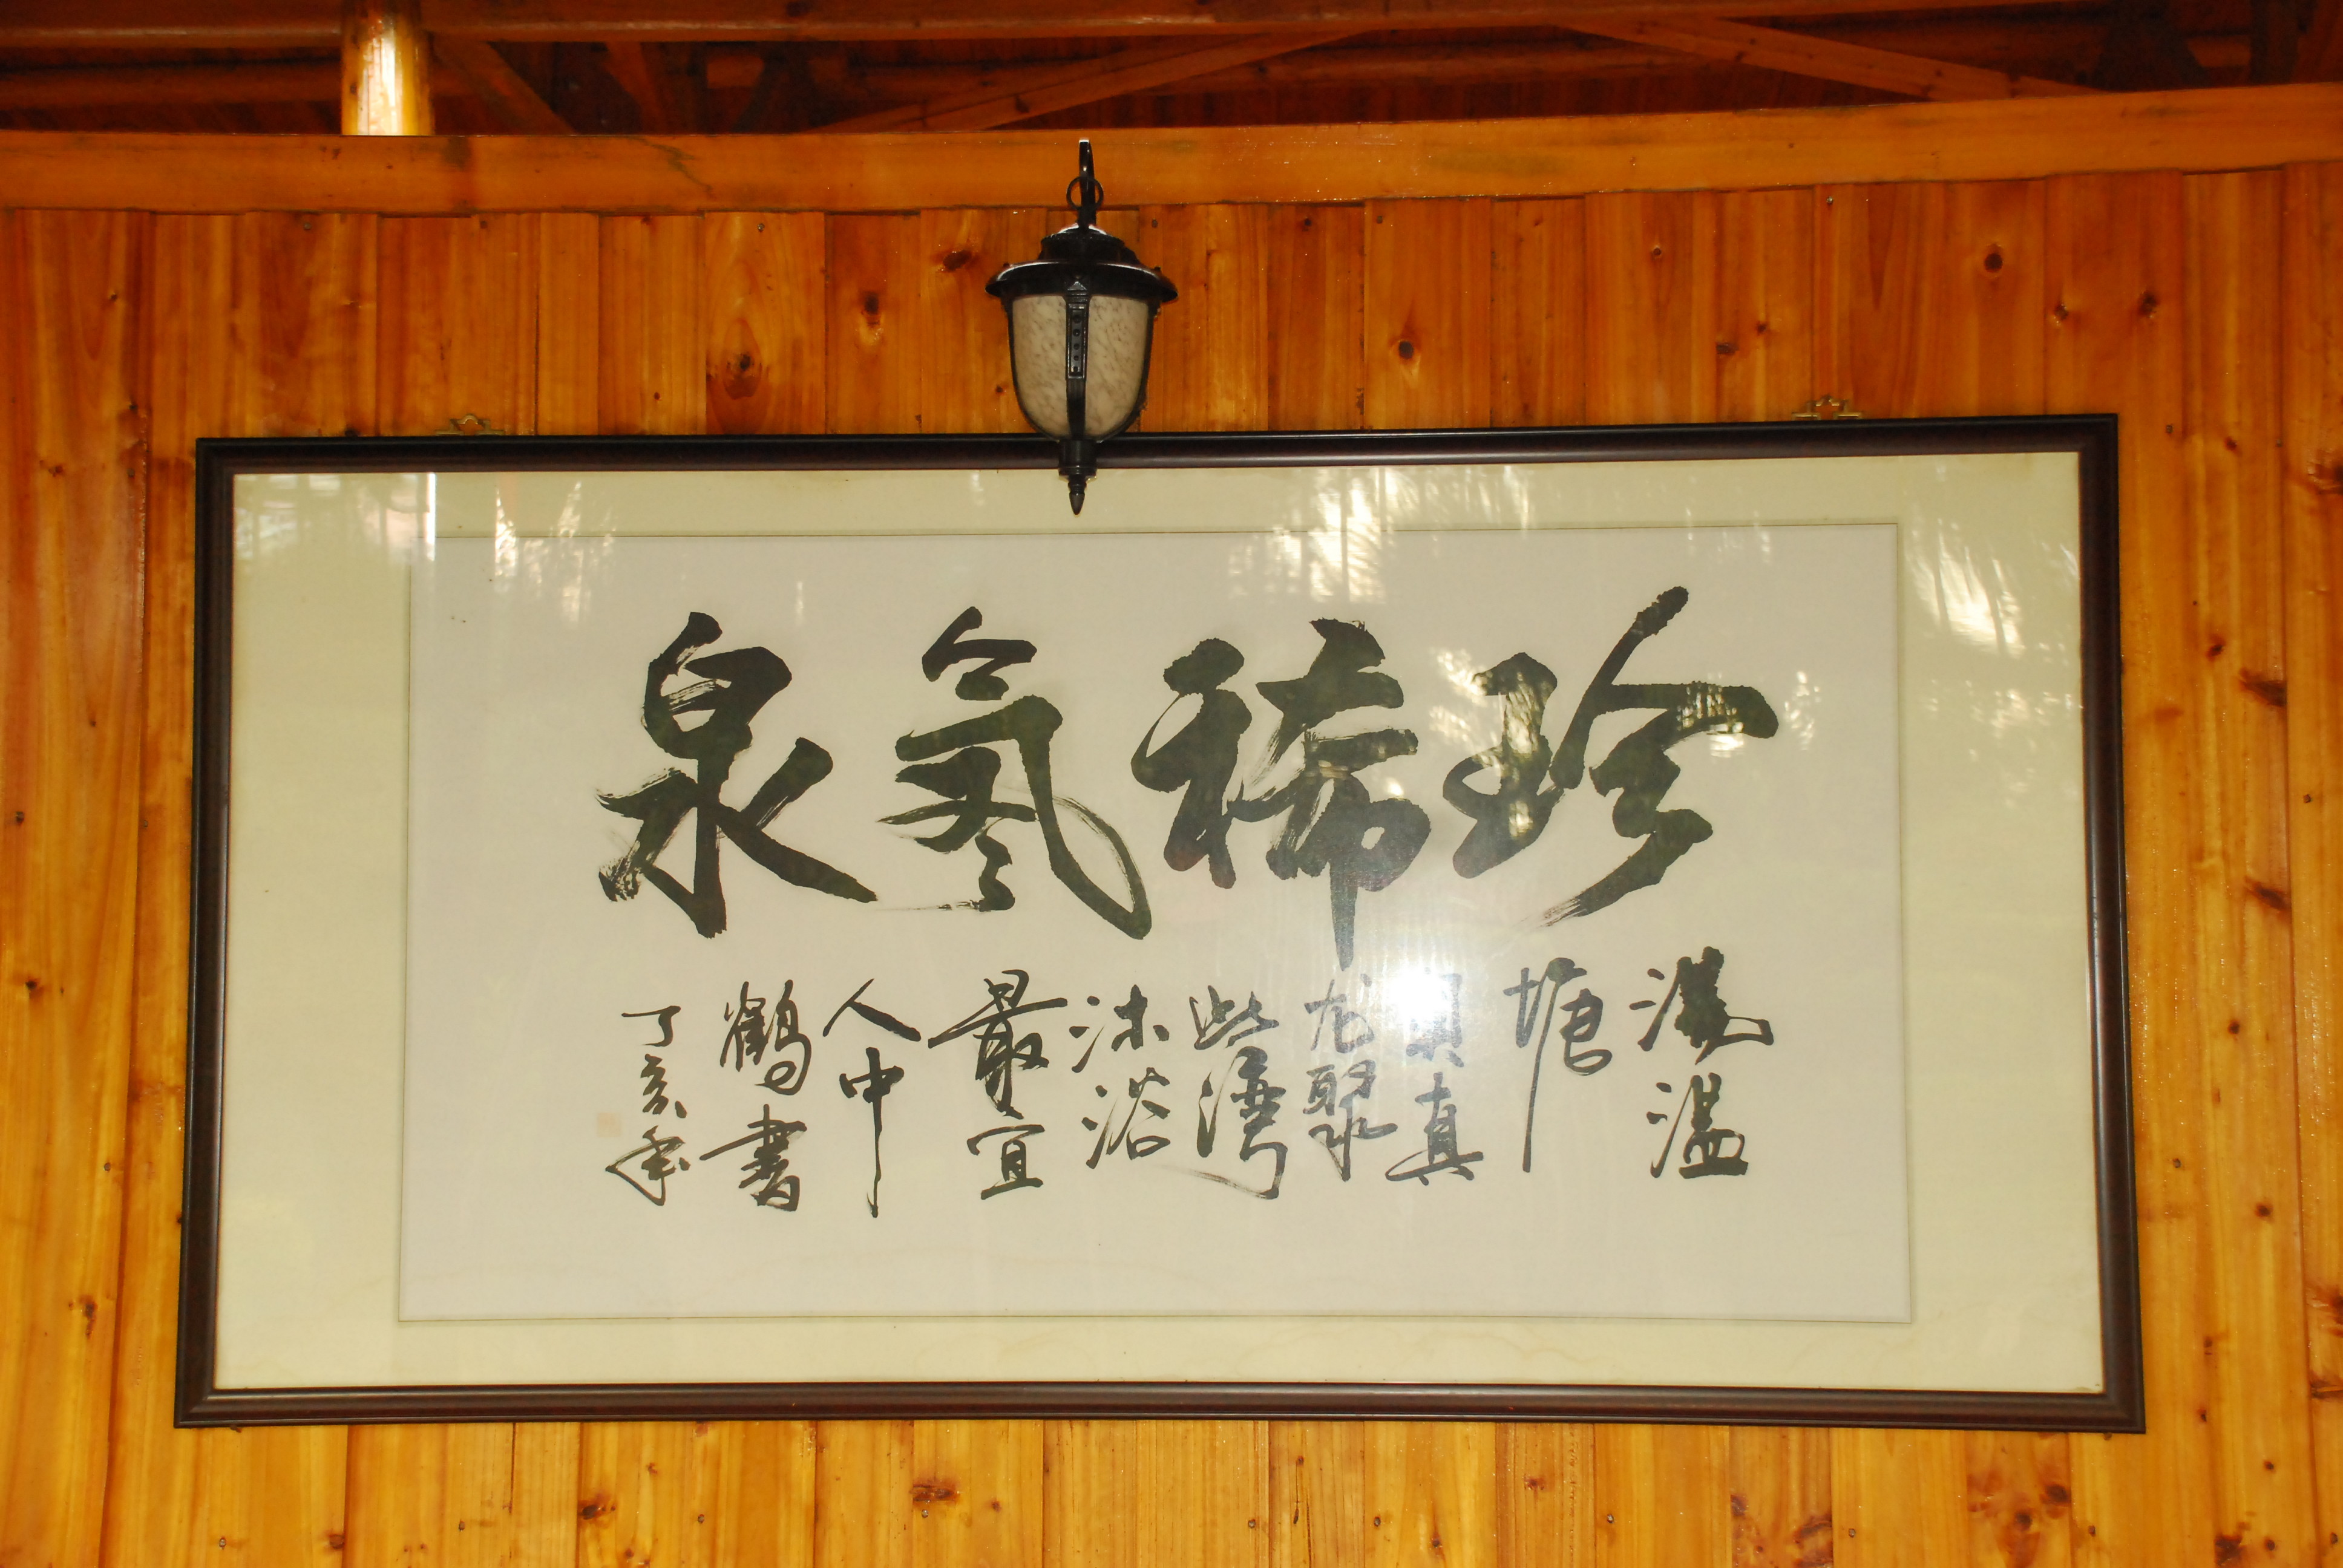 珍稀氡泉
温
塘
真
龙聚
此灣
沐浴
最宜
人中
鶴書
丁亥年